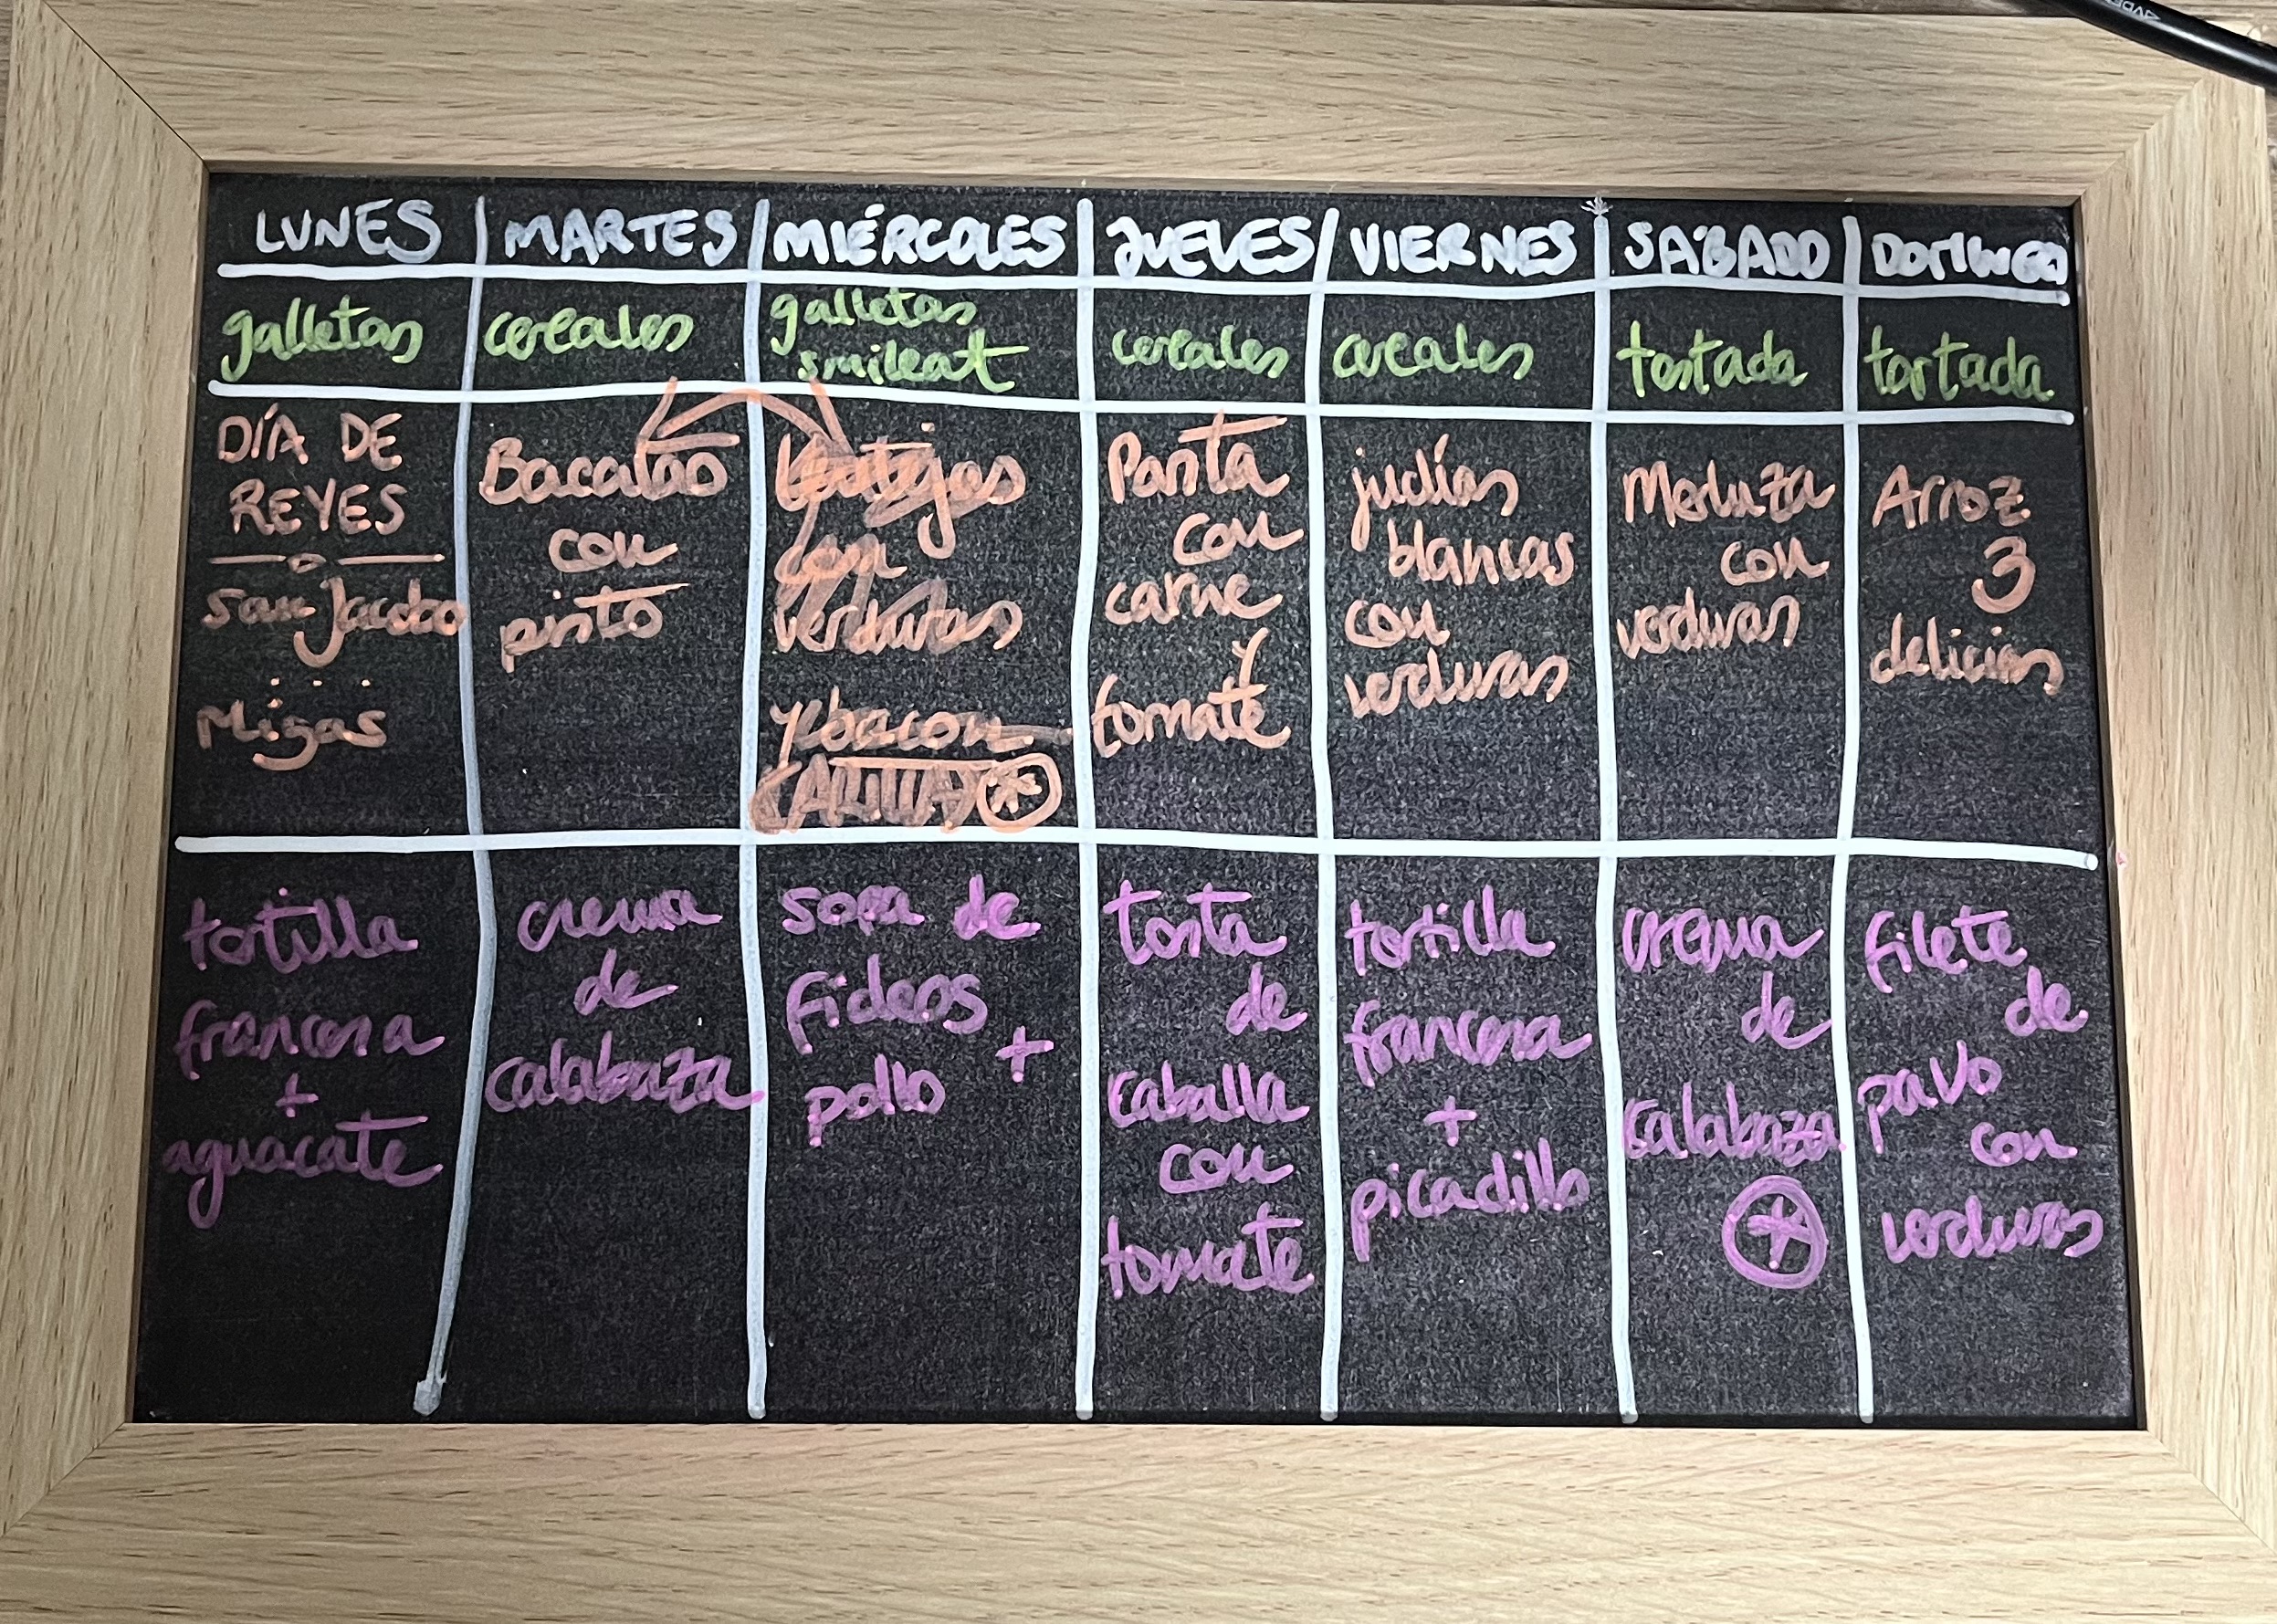 LUNES
MARTES
MIÉRCOLES
JUEVES
VIERNES
SÁBADO
DOMINGO
galletas
cereales
galletas
smileat
cereales
cereales
tostada
tostada
DÍA DE
REYES
San Jacobo
Migas
Bacalao
con
pisto
lentejas
con
verduras
y bacon
Pasta
con
carne
y
tomate
judías
blancas
con
verduras
Merluza
con
verduras
Arroz
3
delicias
tortilla
francesa
+
aguacate
crema
de
calabaza
sopa de
fideos
+
pollo
tosta
de
caballa
con
tomate
tortilla
francesa
+
picadillo
crema
de
calabaza
*
filete
de
pavo
con
verduras